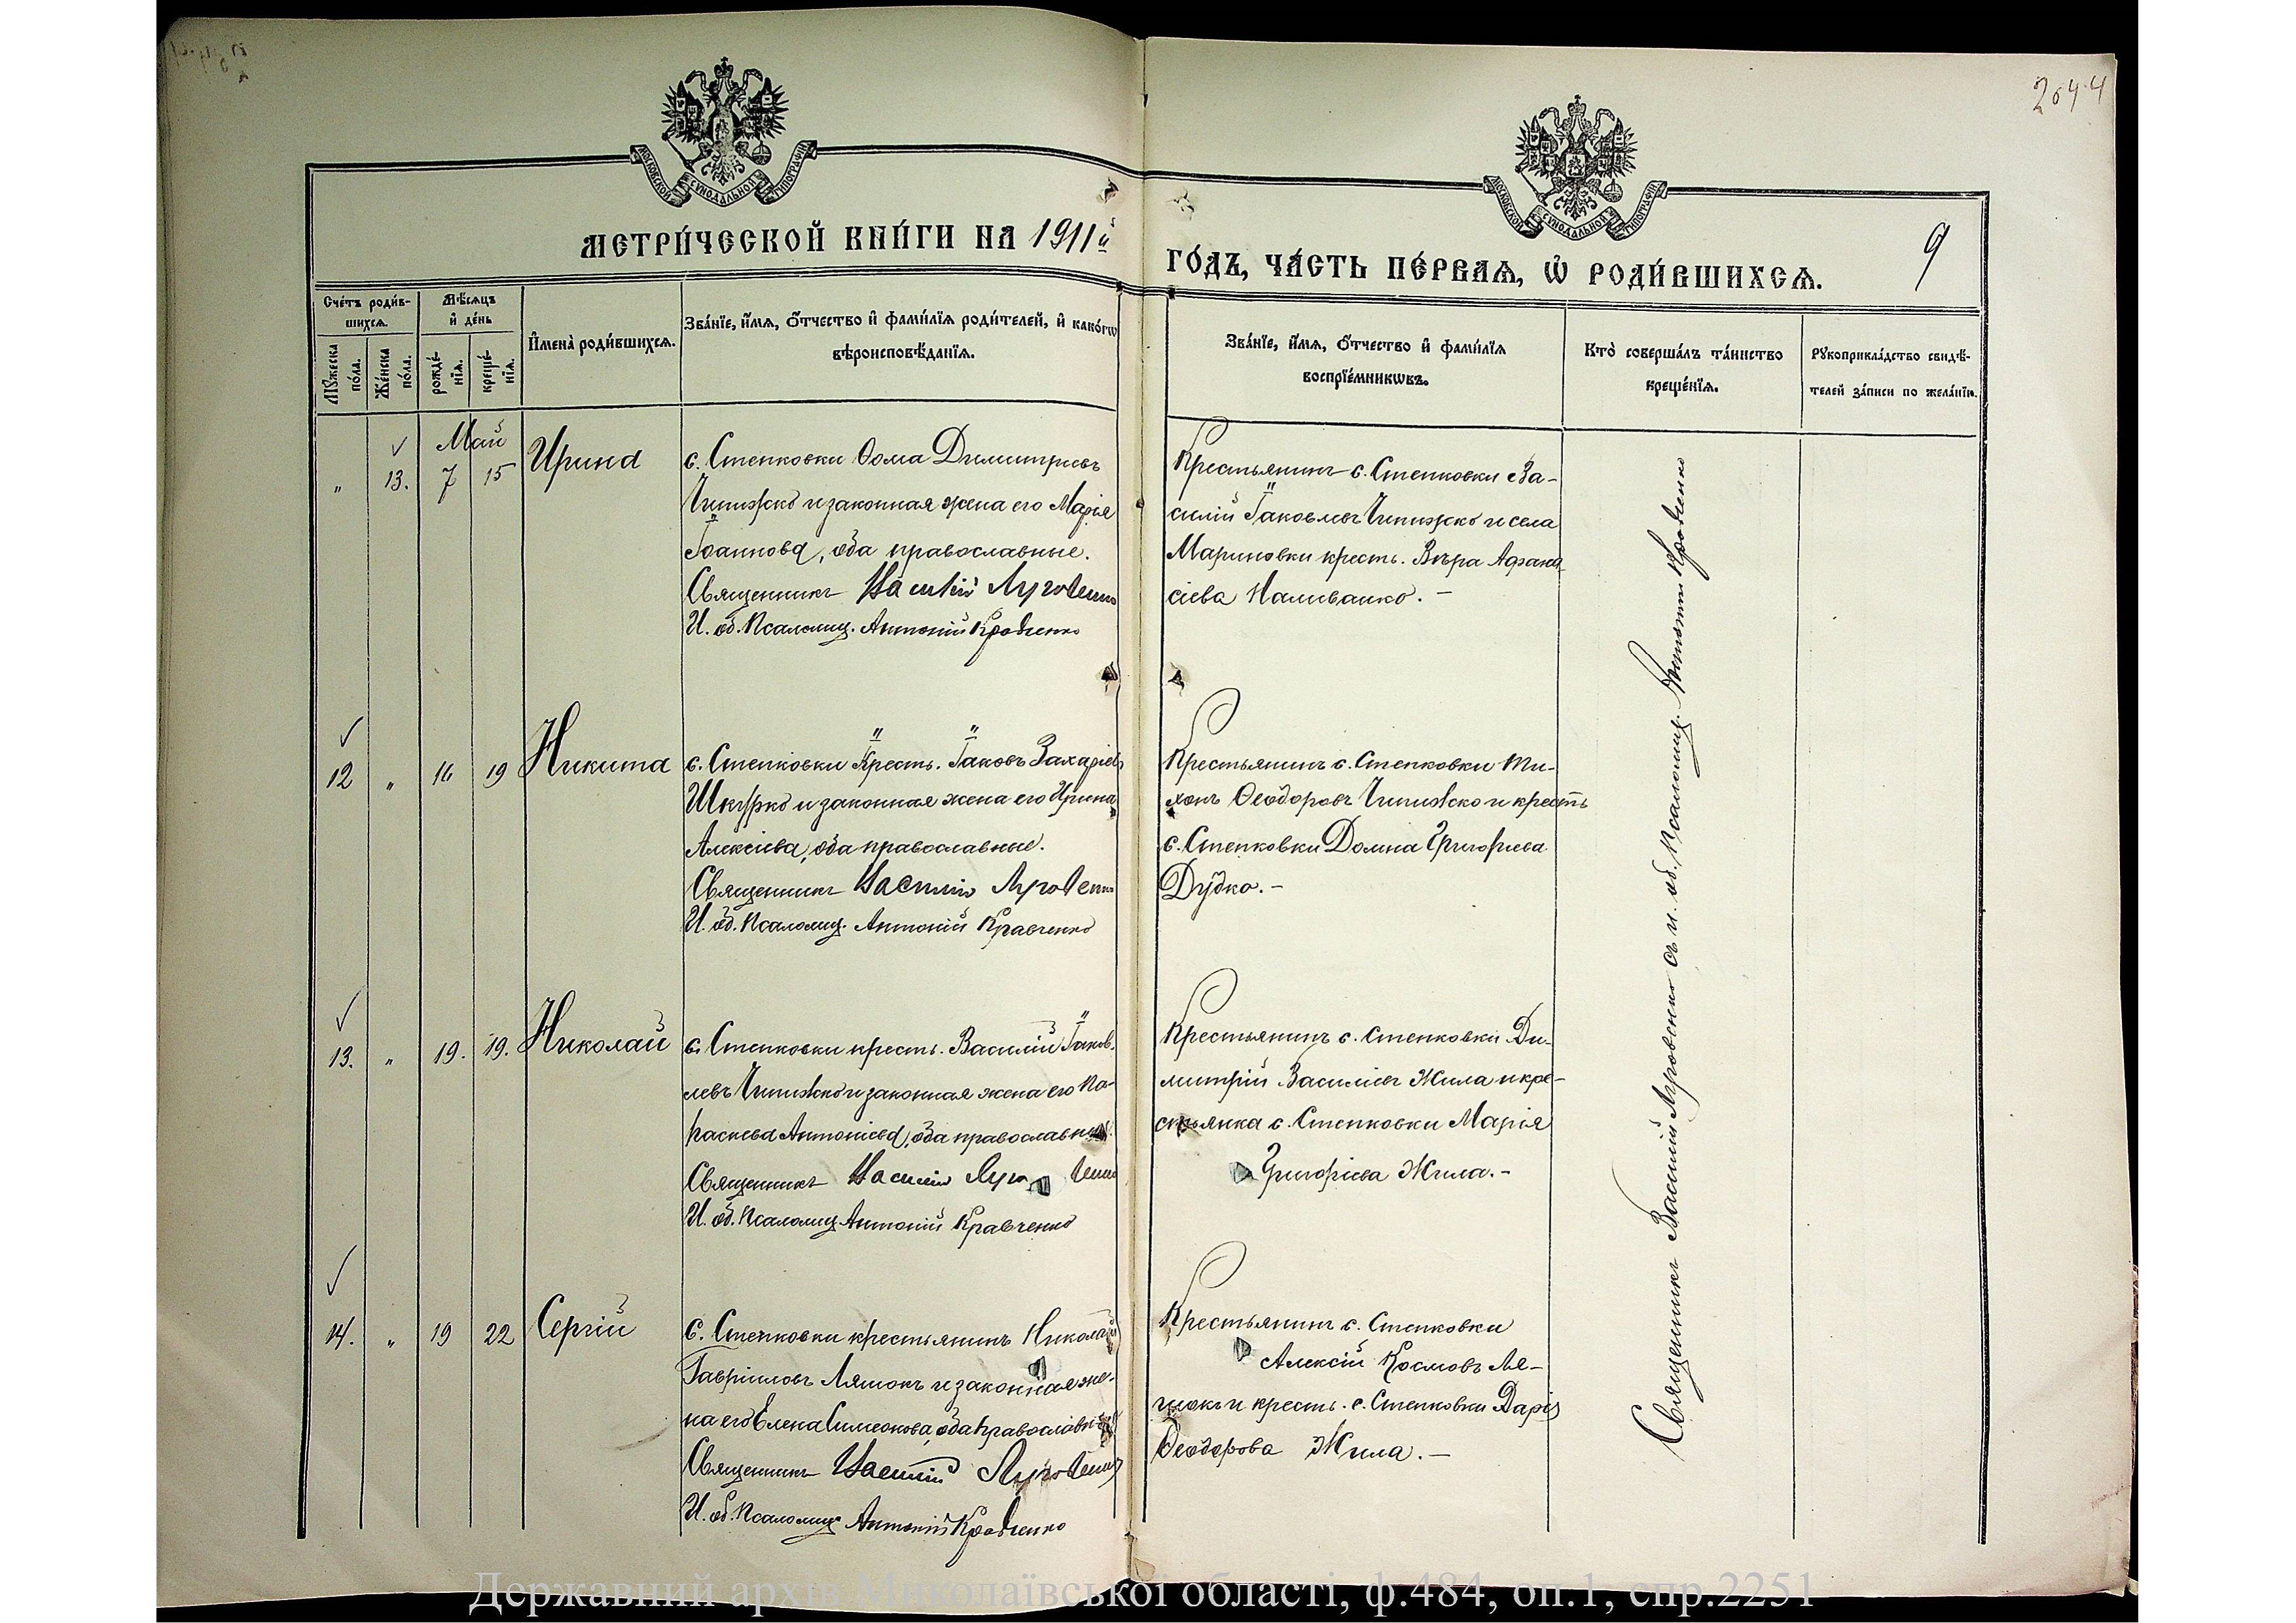 2044
МОСКОВСКОЙ СѴНОДАЛЬНОЙ ТИПОГРАФІИ
МОСКОВСКОЙ СѴНОДАЛЬНОЙ ТИПОГРАФІИ
МЕТРИ́ЧЕСКОЙ КНИ́ГИ НА 1911й
ГО́ДЪ, ЧА́СТЬ ПЕ́РВАЯ, Ѡ҆ РОДИ́ВШИХСЯ.
9
Сче́тъ роди́в-
шихся.
Мꙋжеска
по́ла.
Же́нска
по́ла.
Мѣ́сяцъ
и҆ де́нь
рожде́-
нїя.
креще́-
нїя.
И҆мена̀ роди́вшихся.
Зва́нїе, и҆́мя, ѻ҆́тчество и҆ фами́лїя роди́телей, и҆ како́гѡ
вѣроисповѣ́данїя.
Зва́нїе, и҆́мя, ѻ҆́тчество и҆ фами́лїя
воспрїе́мникѡвъ.
Кто̀ соверша́лъ та́инство
креще́нїя.
Рꙋкоприкла́дство свидѣ́-
телей за́писи по жела́нїю.
Май
" 13. 7 15 Ирина
с. Степковки Ѳома Димитріевъ
Чипижко и законная жена его Марія
Іоаннова, оба православные.
Священникъ Василій Луговенко
И. об. Псаломщ. Антоній Кравченко
Крестьянинъ с. Степковки Ва-
силій Іаковлевъ Чипижко и села
Мариновки кресть. Вѣра Афана-
сіева Наливайко. –
12 " 16 19 Никита
с. Степковки Кресть. Іаковъ Захаріевъ
Шкурко и законная жена его Ирина
Алексіева, оба православные.
Священникъ Василій Луговенко
И. об. Псаломщ. Антоній Кравченко
Крестьянинъ с. Степковки Ти-
хонъ Ѳеодоровъ Чипижко и кресть
с. Степковки Домна Григоріева
Дудко. –
13. " 19. 19. Николай
с. Степковки кресть. Василій Іаков-
левъ Чипижко и законная жена его Па-
раскева Антоніева, оба православные.
Священникъ Василій Луговенко
И. об. Псаломщ. Антоній Кравченко
Крестьянинъ с. Степковки Ди-
митрій Василіевъ Жила и кре-
стьянка с. Степковки Марія
Григоріева Жила. –
14. " 19 22 Сергій
с. Степковки крестьянинъ Николай
Гавріиловъ Ляшокъ и законная же-
на его Елена Симеонова, оба православные
Священникъ Василій Луговенко
И. об. Псаломщ. Антоній Кравченко
Крестьянинъ с. Степковки
Алексій Космовъ Ля-
шокъ и кресть. с. Степковки Дарія
Ѳеодорова Жила. –
Священникъ Василій Луговенко съ и. об. Псаломщ. Антоніемъ Кравченко
Державний архів Миколаївської області, ф.484, оп.1, спр.2251